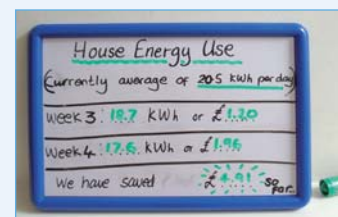 House Energy Use
(Currently average of 20.5 kWh per day)
Week 3: 18.7 kWh or £1.20
Week 4: 17.6 kWh or £1.96
We have saved £4.91 so far..